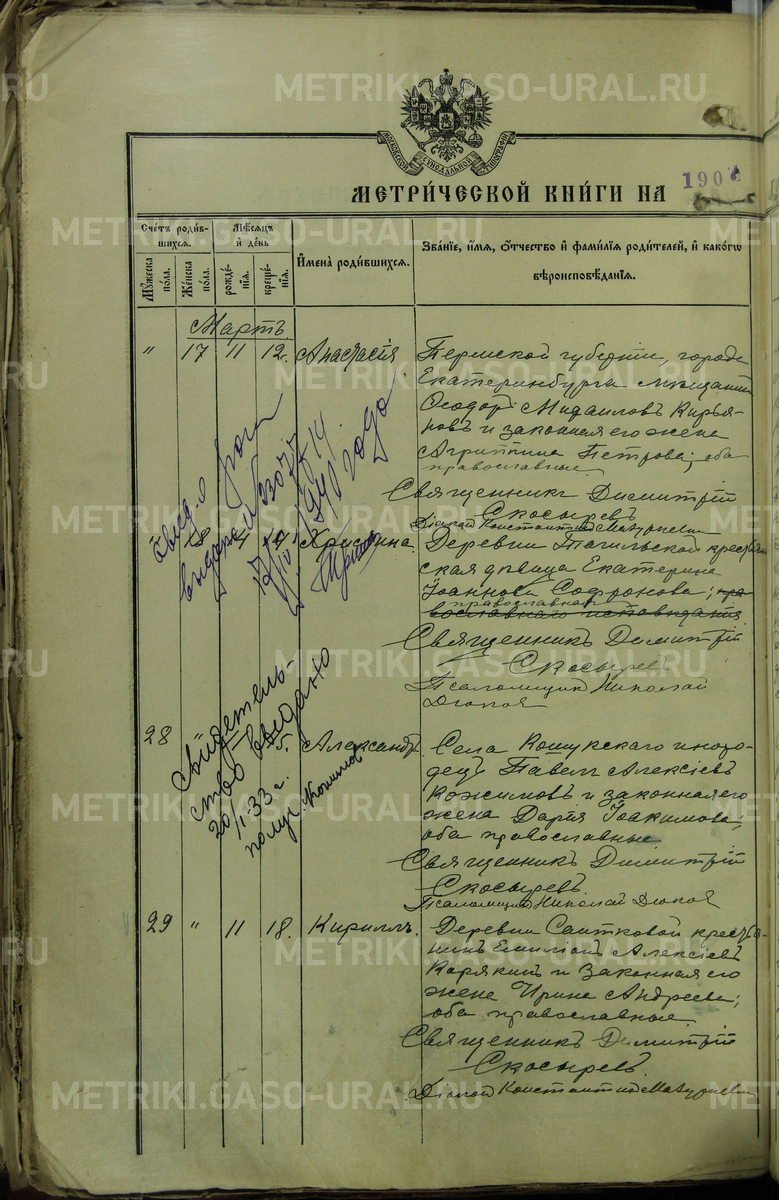 METRIKI.GASO-URAL.RU
МОСКОВСКОЙ СѴНОДАЛЬНОЙ ТИПОГРАФІИ
МЕТРИ́ЧЕСКОЙ КНИ́ГИ НА 1907
Сче́тъ роди́в-
шихся.
Мѣ́сяцъ
и҆ де́нь
Мꙋ́жеска
по́ла.
Же́нска
по́ла.
рожде́-
нїѧ.
креще́-
нїѧ.
И҆мена̀ роди́вшихсѧ.
Зва́нїе, и҆́мѧ, ѻ҆́тчество и҆ фами́лїѧ роди́телей, и҆ како́гѡ
вѣроисповѣ́данїѧ.
Мартъ
" 17 11 12. Анастасія
Пермской губерніи, города
Екатеринбурга мѣщанинъ
Ѳеодоръ Михаиловъ Кирья-
новъ и законная его жена
Агриппина Петрова; оба
православные
Священникъ Димитрій
Скосыревъ
Діаконъ Константинъ Мазуркевич
" 18 Христина
Деревни Тагильской крестьян
ская дѣвица Екатерина
Іоаннова Софронова; пра-
православная
вославнаго исповѣданія
Священникъ Димитрій
Скосыревъ
Псаломщикъ Николай
28 " 5. Александръ
Села Кошукскаго иноро-
децъ Павелъ Алексіевъ
Кожимовъ и законная его
жена Дарія Іоакимова;
оба православные
Священникъ Димитрій
Скосыревъ.
Псаломщикъ Николай
29 " 11 18. Кириллъ.
Деревни Саитковой крестья-
нинъ Емиліанъ Алексіевъ
Карякинъ и законная его
жена Ирина Андреева;
оба православные.
Священникъ Димитрій
Скосыревъ.
Діаконъ Константинъ Мазуркевич
Свид-о о рож
выдано
1940 года
Свидетель-
ство выдано
20/I 33 г.
получ.